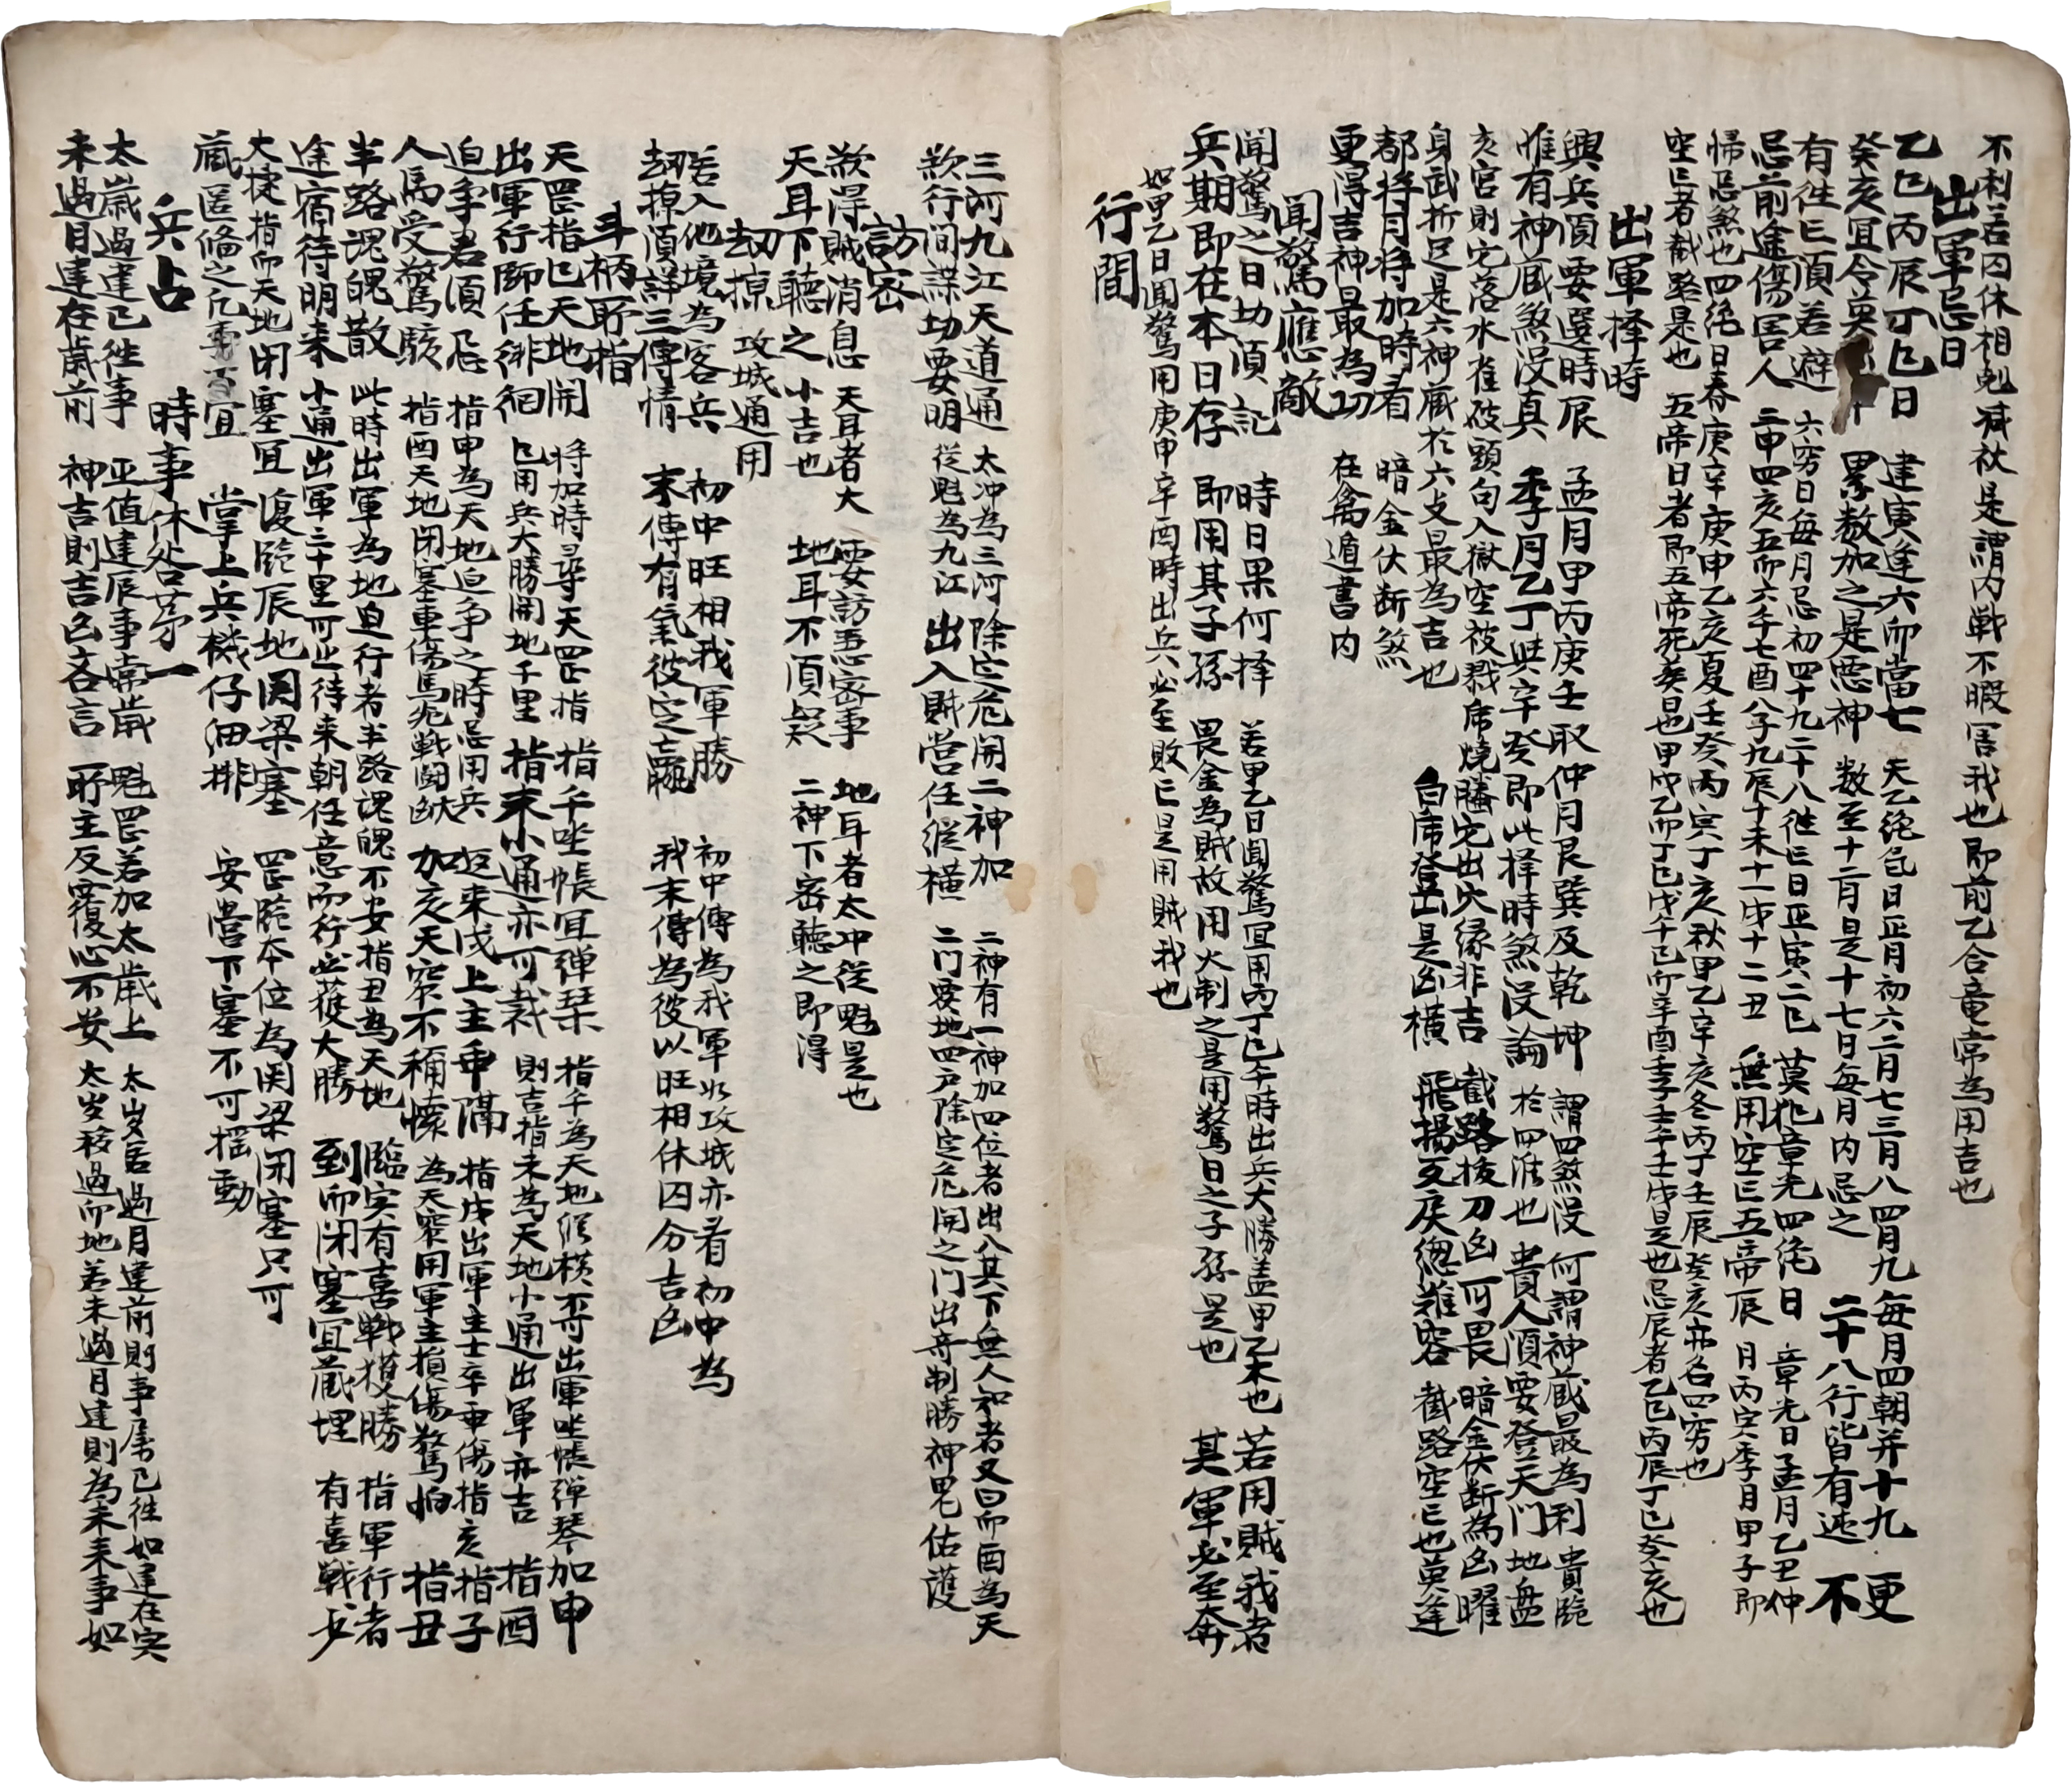 不利若囚休相剋減狄是謂内戰不暇害我也即前乙合竜常為用吉也
出軍忌日
乙巳丙辰丁巳日 建寅逢六卯當七 天乙絶気日正月初六二月七三月八四月九每月四朔并十九 更
癸亥宜令莫 十 累数加之是悪神 数至十二月是十七日每月内忌之 二十八行皆有迍 不
有往亡須若避 六窮日每月忌初四十九二十八往亡日正寅二巳 莫犯章光四絶日 章光日孟月乙丑仲
忌前途傷害人 三申四亥五卯六午七酉八子九辰十未十一戌十二丑 無用空亡五帝辰 月丙寅季月甲子即
帰忌煞也四絶日春庚辛庚申乙亥夏壬癸丙寅丁亥秋甲乙辛亥冬丙丁壬辰癸亥亦名四窮也
空亡者截路是也 五帝日者即五帝死葵日也甲戌乙卯丁巳戊午己卯辛酉壬子壬午壬戌是也忌辰者乙巳丙辰丁巳癸亥也
出軍择時
興兵須要選時辰 孟月甲丙庚壬取仲月艮巽及乾坤 謂四煞没 何謂神蔵最為利 貴臨
惟有神蔵煞没真 季月乙丁與辛癸即此择時煞没論 於四維也 貴人須要登天門 地盤
亥宮則它落水雀破頭勾入獄空被戮席燒勝它出穴缘非吉 截路拔刀凶可畏 暗金伏断為凶曜
身武折足是六神蔵於六支最為吉也 白席登岳是凶橫 飛揚反戾緫難容 截路空亡也莫逢
都将月将加時看 暗金伏断煞
更得吉神最為功 在禽遁書内
聞驚應敵
聞驚之日切須記 時日果何择 若甲乙日聞驚宜用丙丁巳午時出兵大勝盖甲乙木也 若用賊我者
兵期即在本日存 即用其子孫 畏金為賊故用火制之是用驚日之子孫是也 其軍必至奔
如甲乙日聞驚用庚申辛酉時出兵必至敗亡是用賊我也
行間
三河九江天道通 太冲為三河 除定危開二神加 二神有一神加四位者出入其下無人知者又曰卯酉為天
欲行间諜切要明 從魁為九江 出入賊営任縱橫 二门要地四户除定危開之门出奇制勝神鬼佑護
訪密
欲得賊消息 天耳者大 要訪悪密事 地耳者太冲從魁是也
天耳下聽之 小吉也 地耳不須疑 二神下密聽之即得
劫掠 攻城通用
若入他境為客兵 初中旺相我軍勝 初中傳為我軍必攻城亦看初中為
劫掠須詳三傳情 末傳有氣彼定贏 我末傳為彼以旺相休囚分吉凶
斗柄所指
天罡指巳天地開 将加時尋天罡指 指午坐帳宜彈琹 指午為天地縱橫不可出軍坐帳彈琴 加申
出軍行師任徘徊 巳用兵大勝開地千里 指未小通亦可裁 則吉指未為天地小通出軍亦吉 指酉
迫争君須忌 指申為天地迫争之時忌用兵 迎来戌上主乖隔 指戌出軍主士卒乖傷指亥指子
人馬受驚駭 指酉天地闭塞車傷馬死戰鬪凶 加亥天窂不稱懐 為天窂用軍主損傷驚怕 指丑
半路魂魄散 此時出軍為地迫行者半路魂魄不安指丑為天地 臨寅有喜戰獲勝 指軍行者
途宿待明来 小通出軍三十里可止待来朝任意而行必獲大勝 到卯闭塞宜蔵埋 有喜戰必
大捷指卯天地闭塞宜 復臨辰地関梁塞 罡臨本位為関梁闭塞只可
蔵匿修之凡事百宜 掌上兵機仔细排 安営下塞不可摇動
兵占 時事休咎茅一
太歲過建已往事 正值建辰事常歲 魁罡若加太歲上 太岁居過月建前則事属已往如建在寅
未過月建在歲前 神吉則吉凶吝言 所主反覆心不安 太岁移過卯地若未過月建則為未来事如